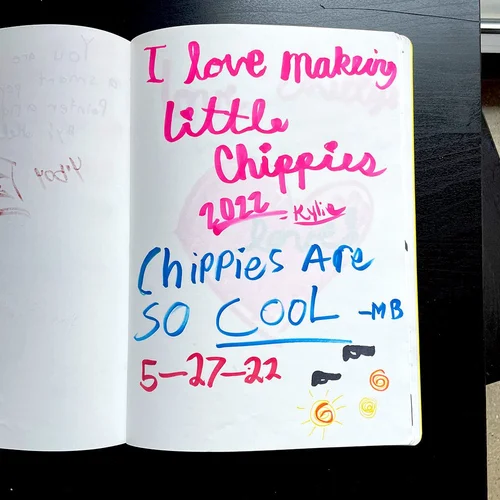 I love makeing
little
Chippies
2022 - Kylie
Chippies Are
SO COOL -MB
5-27-22